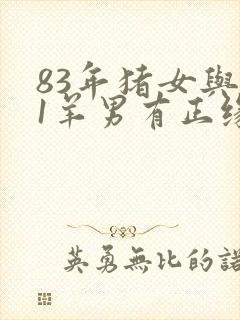 83年猪女與
1羊男有正缘
英勇無比的諾